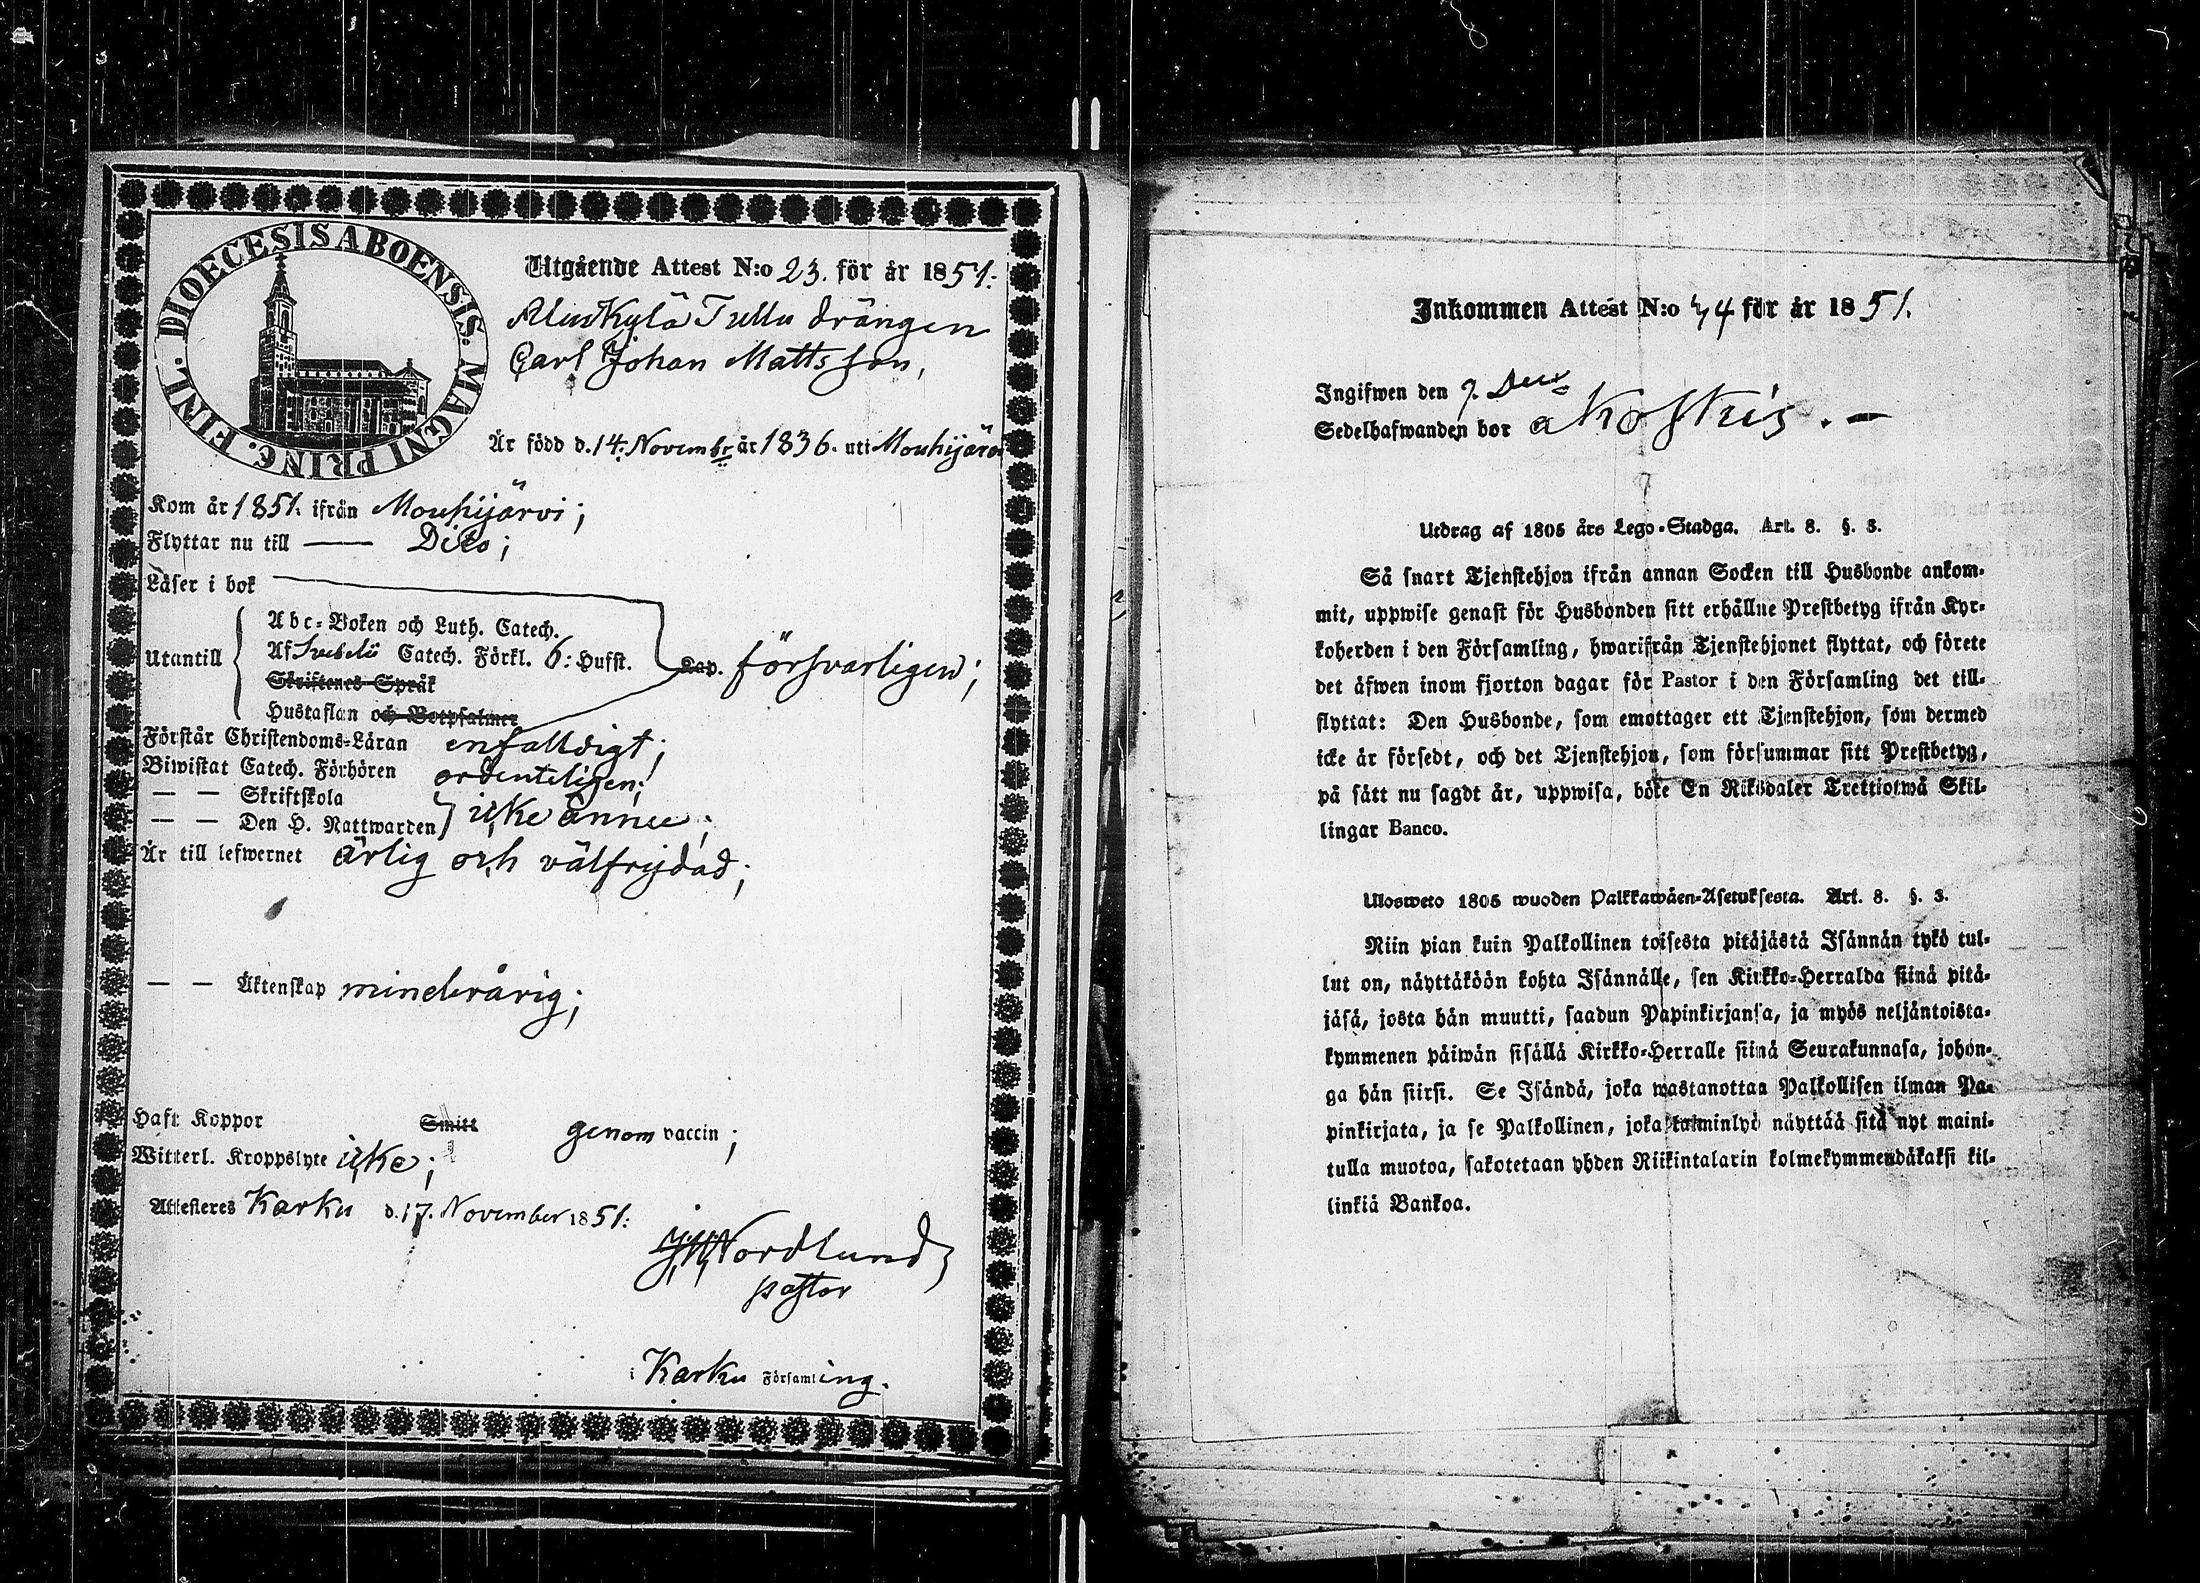 DIOECESIS ABOENSIS. MAGNI PRINC. FINL.
Utgående Attest N:o 23. för år 1851.
Aluskylä Tullu drängen
Carl Johan Mattsson,
Är född d. 14. Novembr år 1836. uti Mouhijärvi
Kom år 1851. ifrån Mouhijärvi;
Flyttar nu till —— Dito;
Läser i bok
Utantill
Abc-Boken och Luth. Catech.
Af Svebelii Catech. Förkl. 6: Hufst. Kap. försvarligen;
Skriftenes Språk
Hustaflan och Botpsalmer
Förstår Christendoms-Läran enfalldigt;
Biwistat Catech. Förhören ordenteligen;
— — Skriftskola
— — Den H. Nattwarden } icke ännu;
Är till lefwernet ärlig och välfrejdad;
— — Äktenskap minderårig;
Haft Koppor Smitt genom vaccin;
Witterl. Kroppslyte icke;
Attesteres Karku d. 17. November 1851:
Nordlund
pastor
i Karku Församling.
Inkommen Attest N:o 44 för år 1851.
Ingifwen den 9. Decr
Sedelhafwanden bor Koskis. —
Utdrag af 1805 års Lego-Stadga. Art. 8. §. 3.
Så snart Tjenstehjon ifrån annan Socken till Husbonde ankom-
mit, uppwise genast för Husbonden sitt erhållne Prestbetyg ifrån Kyr-
koherden i den Församling, hwarifrån Tjenstehjonet flyttat, och förete
det äfwen inom fjorton dagar för Pastor i den Församling det till-
flyttat: Den Husbonde, som emottager ett Tjenstehjon, som dermed
icke är försedt, och det Tjenstehjon, som försummar sitt Prestbetyg,
på sätt nu sagdt är, uppwisa, böte En Riksdaler Trettiotwå Skil-
lingar Banco.
Ulosweto 1805 wuoden Palkkawäen-Asetuksesta. Art. 8. §. 3.
Niin pian kuin Palkollinen toisesta pitäjästä Isännän tykö tul-
lut on, näyttäköön kohta Isännälle, sen Kirkko-Herralda siinä pitä-
jäsä, josta hän muutti, saadun Papinkirjansa, ja myös neljäntoista-
kymmenen päiwän sisällä Kirkko-Herralle siinä Seurakunnasa, johon-
ga hän siirsi. Se Isändä, joka wastanottaa Palkollisen ilman Pa-
pinkirjata, ja se Palkollinen, joka laiminlyö näyttää sitä nyt maini-
tulla muotoa, sakotetaan yhden Riikintalarin kolmekymmendäkaksi kil-
linkiä Bankoa.